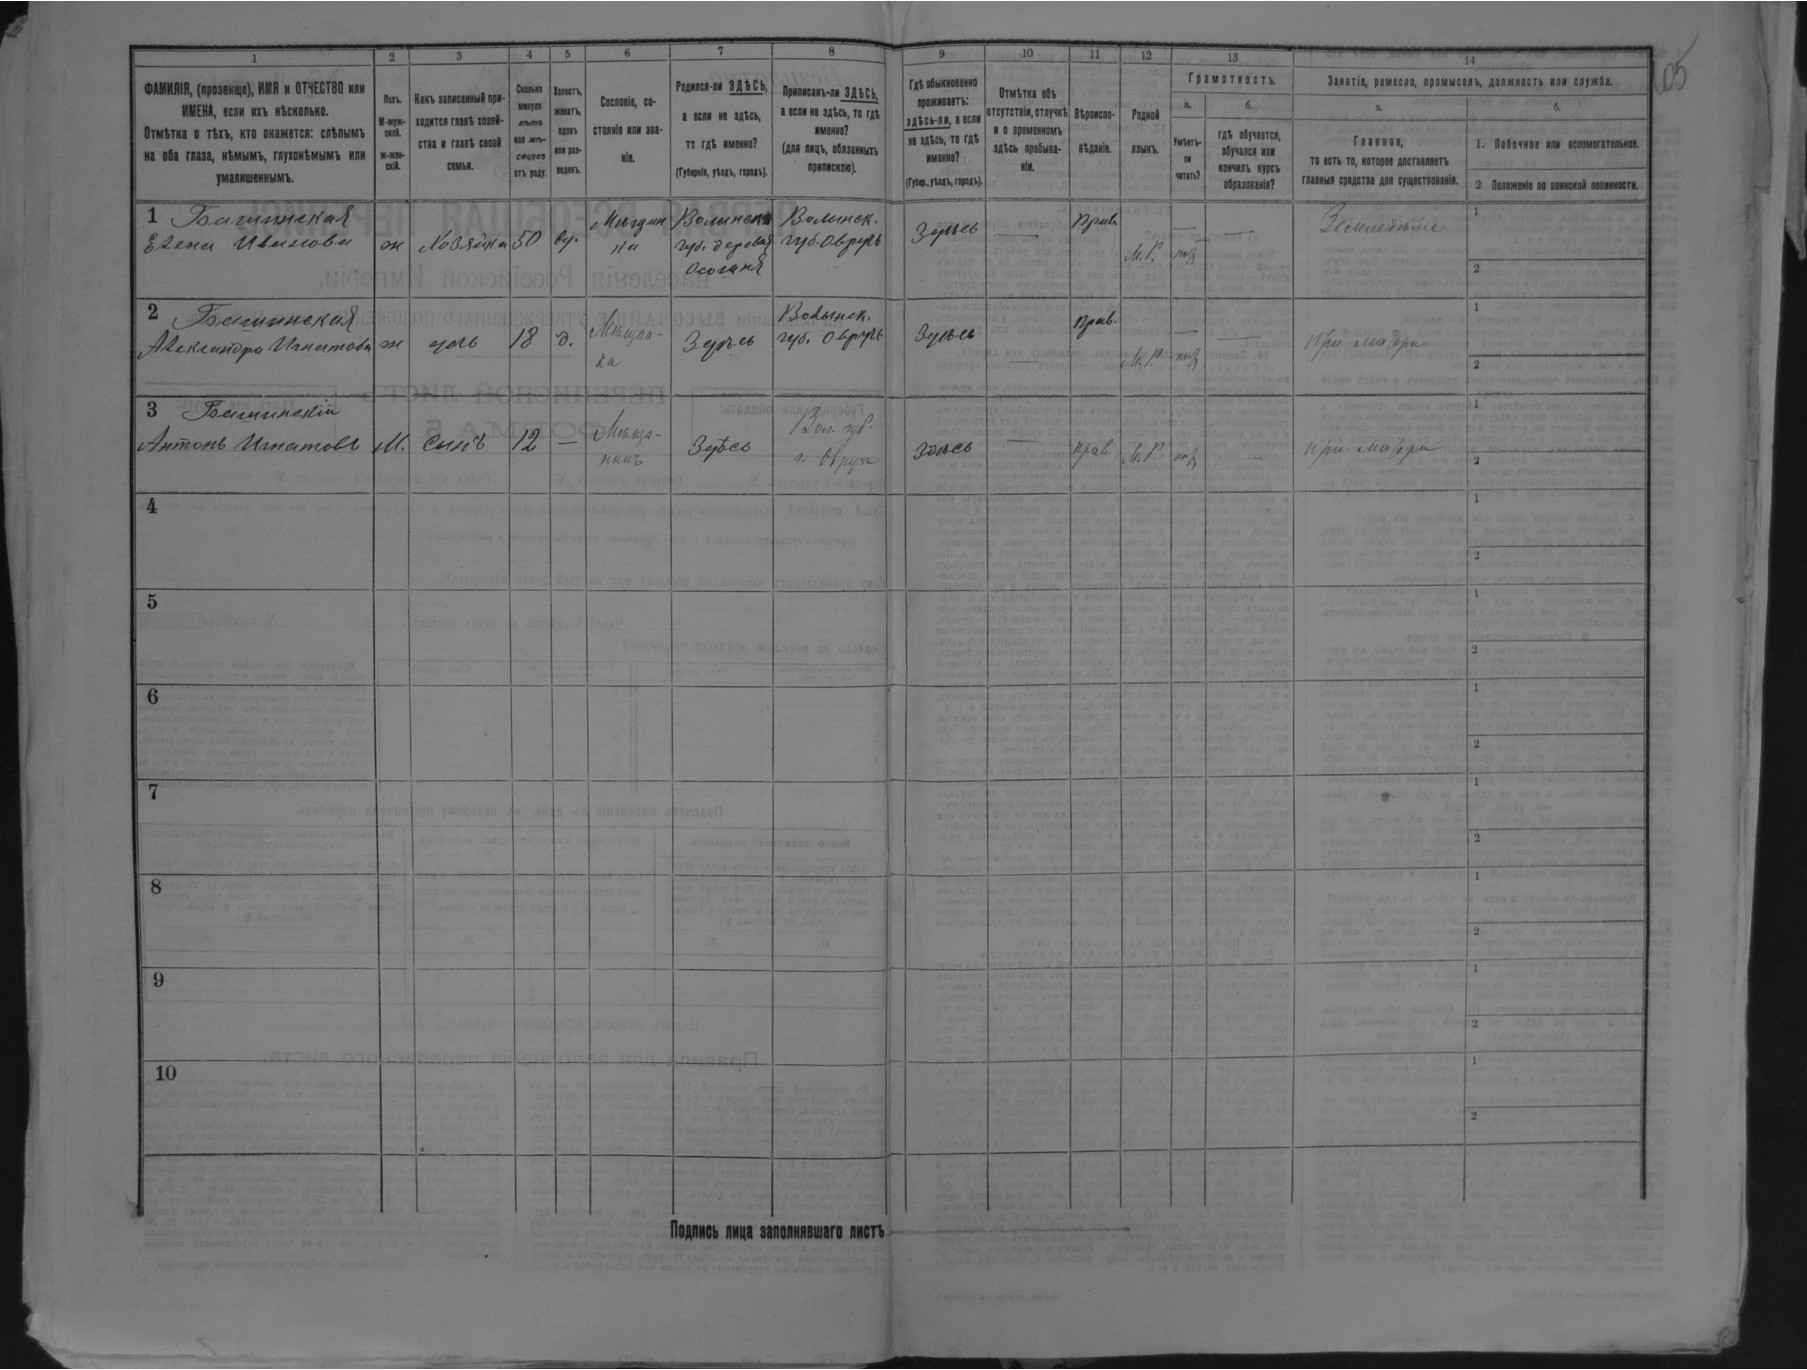 1
2
3
4
5
6
7
8
9
10
11
12
13
14
ФАМИЛІЯ, (прозвище), ИМЯ и ОТЧЕСТВО или
ИМЕНА, если ихъ нѣсколько.
Отмѣтка о тѣхъ, кто окажется: слѣпымъ
на оба глаза, нѣмымъ, глухонѣмымъ или
умалишеннымъ.
Полъ.
М-муж-
ской.
ж-жен-
скій.
Какъ записанный при-
ходится главѣ хозяй-
ства и главѣ своей
семьи.
Сколько
минуло
лѣтъ
или мѣ-
сяцевъ
отъ роду.
Холостъ,
женатъ,
вдовъ
или раз-
веденъ.
Сословіе, со-
стояніе или зва-
ніе.
Родился-ли ЗДѢСЬ,
а если не здѣсь,
то гдѣ именно?
(Губернія, уѣздъ, городъ).
Приписанъ-ли ЗДѢСЬ,
а если не здѣсь, то гдѣ
именно?
(для лицъ, обязанныхъ
припискою).
Гдѣ обыкновенно
проживаетъ:
здѣсь-ли, а если
не здѣсь, то гдѣ
именно?
(Губер., уѣздъ, городъ).
Отмѣтка объ
отсутствіи, отлучкѣ
и о временномъ
здѣсь пребыва-
ніи.
Вѣроиспо-
вѣданіе.
Родной
языкъ.
Грамотность.
а.
б.
Умѣетъ-
ли
читать?
гдѣ обучается,
обучался или
кончилъ курсъ
образованія?
Занятіе, ремесло, промыселъ, должность или служба.
а.
б.
Главное,
то есть то, которое доставляетъ
главныя средства для существованія.
1. Побочное или вспомогательное.
2 Положеніе по воинской повинности.
1 Багинская
Елена Иванова
ж
Хозяйка
50
вд.
Мѣщан
ка
Волынск
губ. деревня
Волынск.
губ. Овручъ
Здѣсь
—
Прав.
М.Р.
—
Земледѣліе
1
2
2 Багинская
Александра Игнатова
ж
дочь
18
д.
Мѣщан-
ка
Здѣсь
Волынск.
губ. Овручъ
Здѣсь
—
Прав.
М.Р.
—
при матери
1
2
3 Багинскій
Антонъ Игнатовъ
М.
сынъ
12
—
Мѣща-
нинъ
Здѣсь
Вол. губ.
г. Овручъ
Здѣсь
—
прав.
М.Р.
—
при матери
1
2
4
1
2
5
1
2
6
1
2
7
1
2
8
1
2
9
1
2
10
1
2
Подпись лица заполнявшаго листъ